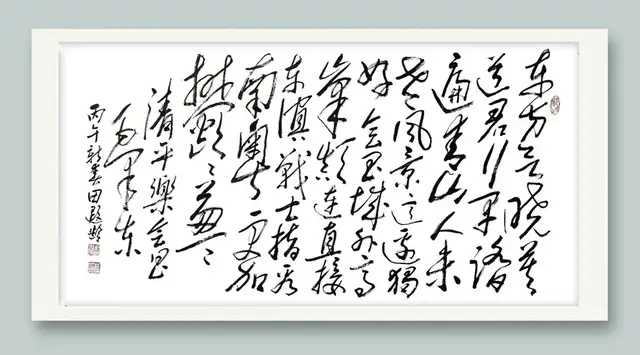 东方欲晓莫
道君行早踏
遍青山人未
老风景这边独
好会昌城外高
峰颠连直接
东溟战士指看
南粤更加
郁郁葱葱
清平樂会昌
毛泽东
丙午新春田遐齡